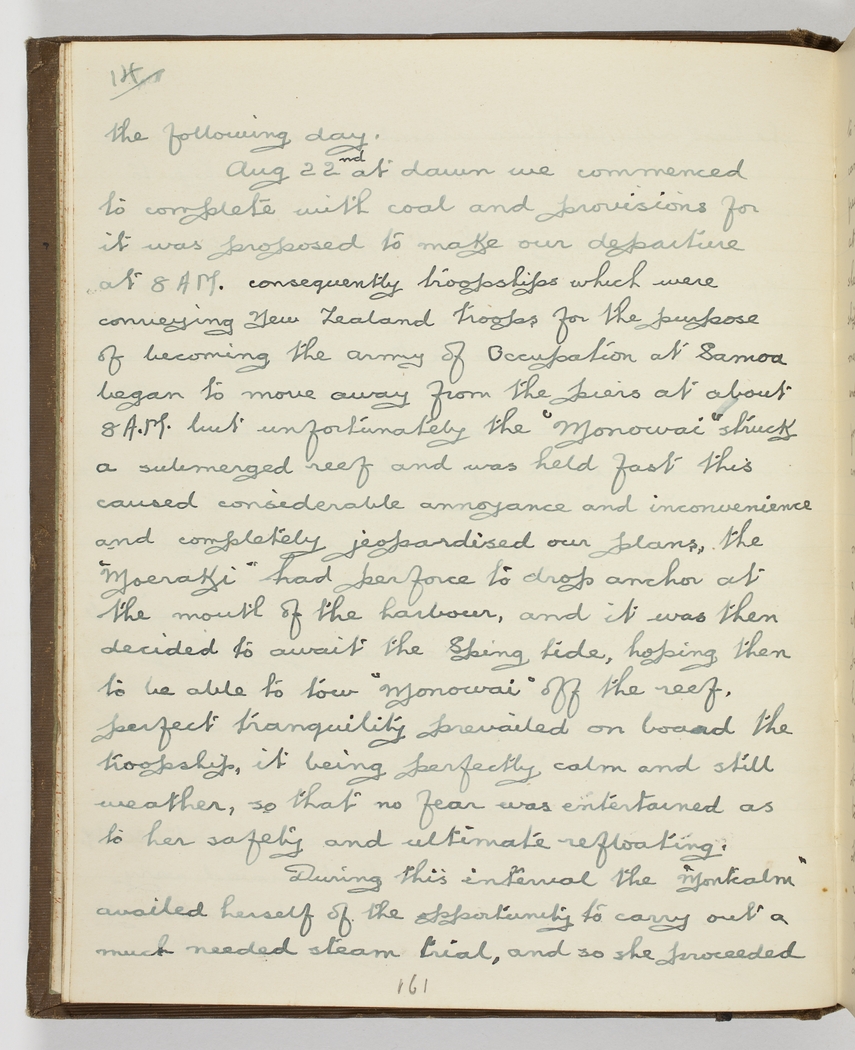 14
the following day.
Aug 22nd at dawn we commenced
to complete with coal and provisions for
it was proposed to make our departure
at 8 A.M. consequently troopships which were
conveying New Zealand troops for the purpose
of becoming the army of Occupation at Samoa
began to move away from the piers at about
8 A.M. but unfortunately the "Monowai" struck
a submerged reef and was held fast this
caused considerable annoyance and inconvenience
and completely jeopardised our plans, the
"Moeraki" had perforce to drop anchor at
the mouth of the harbour, and it was then
decided to await the Sping tide, hoping then
to be able to tow "Monowai" off the reef.
perfect tranquility prevailed on board the
troopship, it being perfectly calm and still
weather, so that no fear was entertained as
to her safety and ultimate refloating.
During this interval the "Montcalm"
availed herself of the opportunity to carry out a
much needed steam trial, and so she proceeded
161